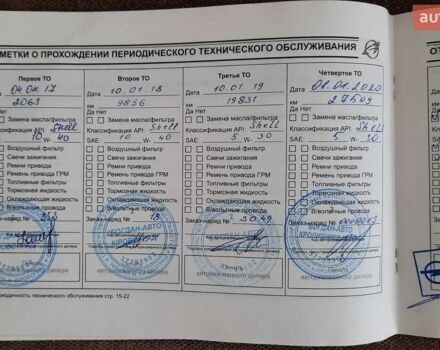 МЕТКИ О ПРОХОЖДЕНИИ ПЕРИОДИЧЕСКОГО ТЕХНИЧЕСКОГО ОБСЛУЖИВАНИЯ
Первое ТО
04.04.17
2063
Нет
Замена масла/фильтра
Классификация API: Shell
10 W- 40
Воздушный фильтр
Свечи зажигания
Ремни привода
Ремень привода ГРМ
Топливные фильтры
Тормозная жидкость
Охлажд. жидкость
В/вольтные провода
Второе ТО
Дата 10.01.18
км 9856
Да Нет
Замена масла/фильтра
Классификация API: Shell
SAE: 10 W- 40
Воздушный фильтр
Свечи зажигания
Ремни привода
Ремень привода ГРМ
Топливные фильтры
Тормозная жидкость
Охлажд. жидкость
В/вольтные провода
Заказ-наряд № 18
Третье ТО
Дата 10.01.19
км 19831
Да Нет
Замена масла/фильтра
Классификация API: Shell
SAE: 5 W- 30
Воздушный фильтр
Свечи зажигания
Ремни привода
Ремень привода ГРМ
Топливные фильтры
Тормозная жидкость
Охлажд. жидкость
В/вольтные провода
Заказ-наряд №
Печать
авторизованного дилера
Четвертое ТО
Дата 08.01.2020
км 27509
Да Нет
Замена масла/фильтра
Классификация API: Shell
SAE: 5 W-
Воздушный фильтр
Свечи зажигания
Ремни привода
Ремень привода ГРМ
Топливные фильтры
Тормозная жидкость
Охлажд. жидкость
В/вольтные провода
Заказ-наряд №
БОГДАН-АВТО
БОГДАН-АВТО
риодичность технического обслуживания стр. 15-22